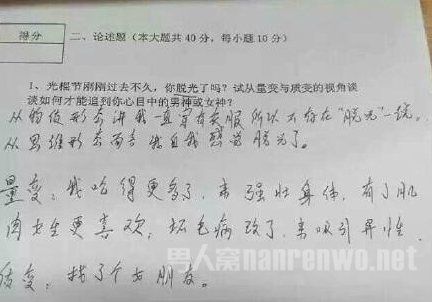 得分
二、论述题（本大题共 40 分，每小题 10 分）
1、光棍节刚刚过去不久，你脱光了吗？试从量变与质变的视角谈
谈如何才能追到你心目中的男神或女神？
从物质形态讲我一直穿有衣服所以不存在“脱光”一说。
从思维形态而言我自我感觉脱光了。
量变：我吃得更多了，来强壮身体，有了肌
肉女生更喜欢；坏毛病改了，来吸引异性.
质变：找了个女朋友。
男人窝nanrenwo.net